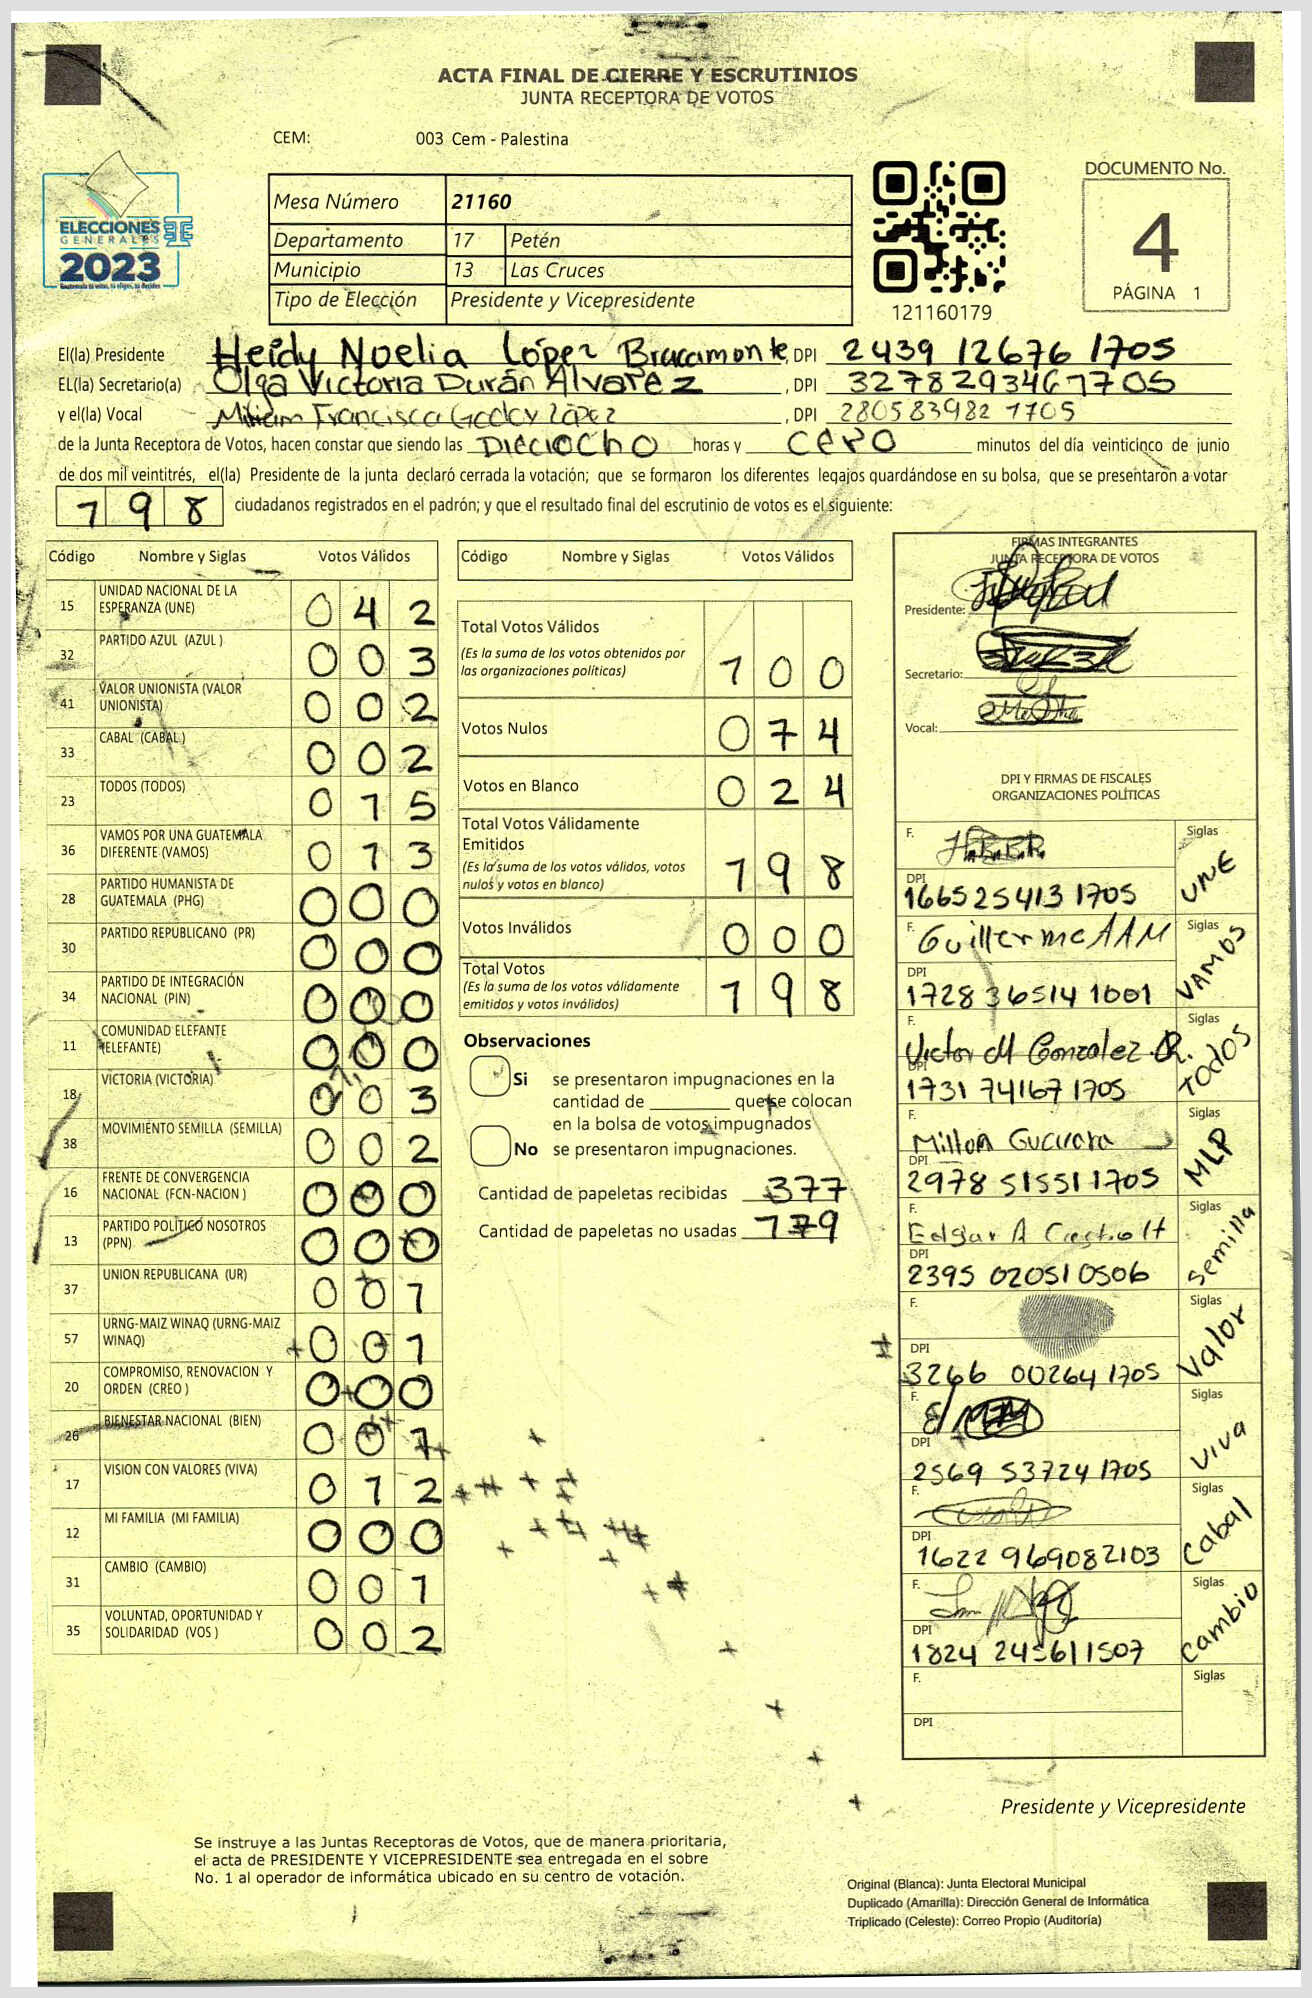 ACTA FINAL DE CIERRE Y ESCRUTINIOS
JUNTA RECEPTORA DE VOTOS
CEM: 003 Cem - Palestina
ELECCIONES
GENERALES
2023
Guatemala tú votas, tú eliges, tú decides
Mesa Número 21160
Departamento 17 Petén
Municipio 13 Las Cruces
Tipo de Elección Presidente y Vicepresidente
121160179
DOCUMENTO No.
4
PÁGINA 1
El(la) Presidente Heidy Noelia López Bracamonte, DPI 2439 12676 1705
EL(la) Secretario(a) Olga Victoria Durán Alvarez, DPI 327829346 1705
y el(la) Vocal Miriam Francisca Godoy López, DPI 280583982 1705
de la Junta Receptora de Votos, hacen constar que siendo las DIECIOCHO horas y CERO minutos del día veinticinco de junio
de dos mil veintitrés, el(la) Presidente de la junta declaró cerrada la votación; que se formaron los diferentes legajos guardándose en su bolsa, que se presentaron a votar
198 ciudadanos registrados en el padrón; y que el resultado final del escrutinio de votos es el siguiente:
Código Nombre y Siglas Votos Válidos
15 UNIDAD NACIONAL DE LA
ESPERANZA (UNE) 042
32 PARTIDO AZUL (AZUL ) 003
41 VALOR UNIONISTA (VALOR
UNIONISTA) 002
33 CABAL (CABAL ) 002
23 TODOS (TODOS) 015
36 VAMOS POR UNA GUATEMALA
DIFERENTE (VAMOS) 013
28 PARTIDO HUMANISTA DE
GUATEMALA (PHG) 000
30 PARTIDO REPUBLICANO (PR) 000
34 PARTIDO DE INTEGRACIÓN
NACIONAL (PIN) 000
11 COMUNIDAD ELEFANTE
(ELEFANTE) 000
18 VICTORIA (VICTORIA) 003
38 MOVIMIENTO SEMILLA (SEMILLA) 002
16 FRENTE DE CONVERGENCIA
NACIONAL (FCN-NACION ) 000
13 PARTIDO POLÍTICO NOSOTROS
(PPN) 000
37 UNION REPUBLICANA (UR) 001
57 URNG-MAIZ WINAQ (URNG-MAIZ
WINAQ) 001
20 COMPROMISO, RENOVACION Y
ORDEN (CREO ) 000
26 BIENESTAR NACIONAL (BIEN) 001
17 VISION CON VALORES (VIVA) 012
12 MI FAMILIA (MI FAMILIA) 000
31 CAMBIO (CAMBIO) 001
35 VOLUNTAD, OPORTUNIDAD Y
SOLIDARIDAD (VOS ) 002
Código Nombre y Siglas Votos Válidos
Total Votos Válidos
(Es la suma de los votos obtenidos por
las organizaciones políticas) 100
Votos Nulos 074
Votos en Blanco 024
Total Votos Válidamente
Emitidos
(Es la suma de los votos válidos, votos
nulos y votos en blanco) 198
Votos Inválidos 000
Total Votos
(Es la suma de los votos válidamente
emitidos y votos inválidos) 198
Observaciones
Si se presentaron impugnaciones en la
cantidad de ________ que se colocan
en la bolsa de votos impugnados
No se presentaron impugnaciones.
Cantidad de papeletas recibidas 377
Cantidad de papeletas no usadas 179
FIRMAS INTEGRANTES
JUNTA RECEPTORA DE VOTOS
Presidente:
Secretario:
Vocal:
DPI Y FIRMAS DE FISCALES
ORGANIZACIONES POLÍTICAS
F. Siglas UNE
DPI 1665 25413 1705
F. Guillermo AAM Siglas VAMOS
DPI 1728 36514 1001
F. Victor M Gonzalez R. Siglas TODOS
DPI 1731 74167 1705
F. Milton Guevara Siglas MLP
DPI 2978 51551 1705
F. Edgar A Castro H Siglas Semilla
DPI 2395 02051 0506
F. Siglas Valor
DPI 3266 00264 1705
F. Siglas Viva
DPI 2569 53724 1705
F. Siglas Cabal
DPI 1622 96908 2103
F. Siglas Cambio
DPI 1824 24561 1507
F. Siglas
DPI
Presidente y Vicepresidente
Se instruye a las Juntas Receptoras de Votos, que de manera prioritaria,
el acta de PRESIDENTE Y VICEPRESIDENTE sea entregada en el sobre
No. 1 al operador de informática ubicado en su centro de votación.
Original (Blanca): Junta Electoral Municipal
Duplicado (Amarilla): Dirección General de Informática
Triplicado (Celeste): Correo Propio (Auditoría)